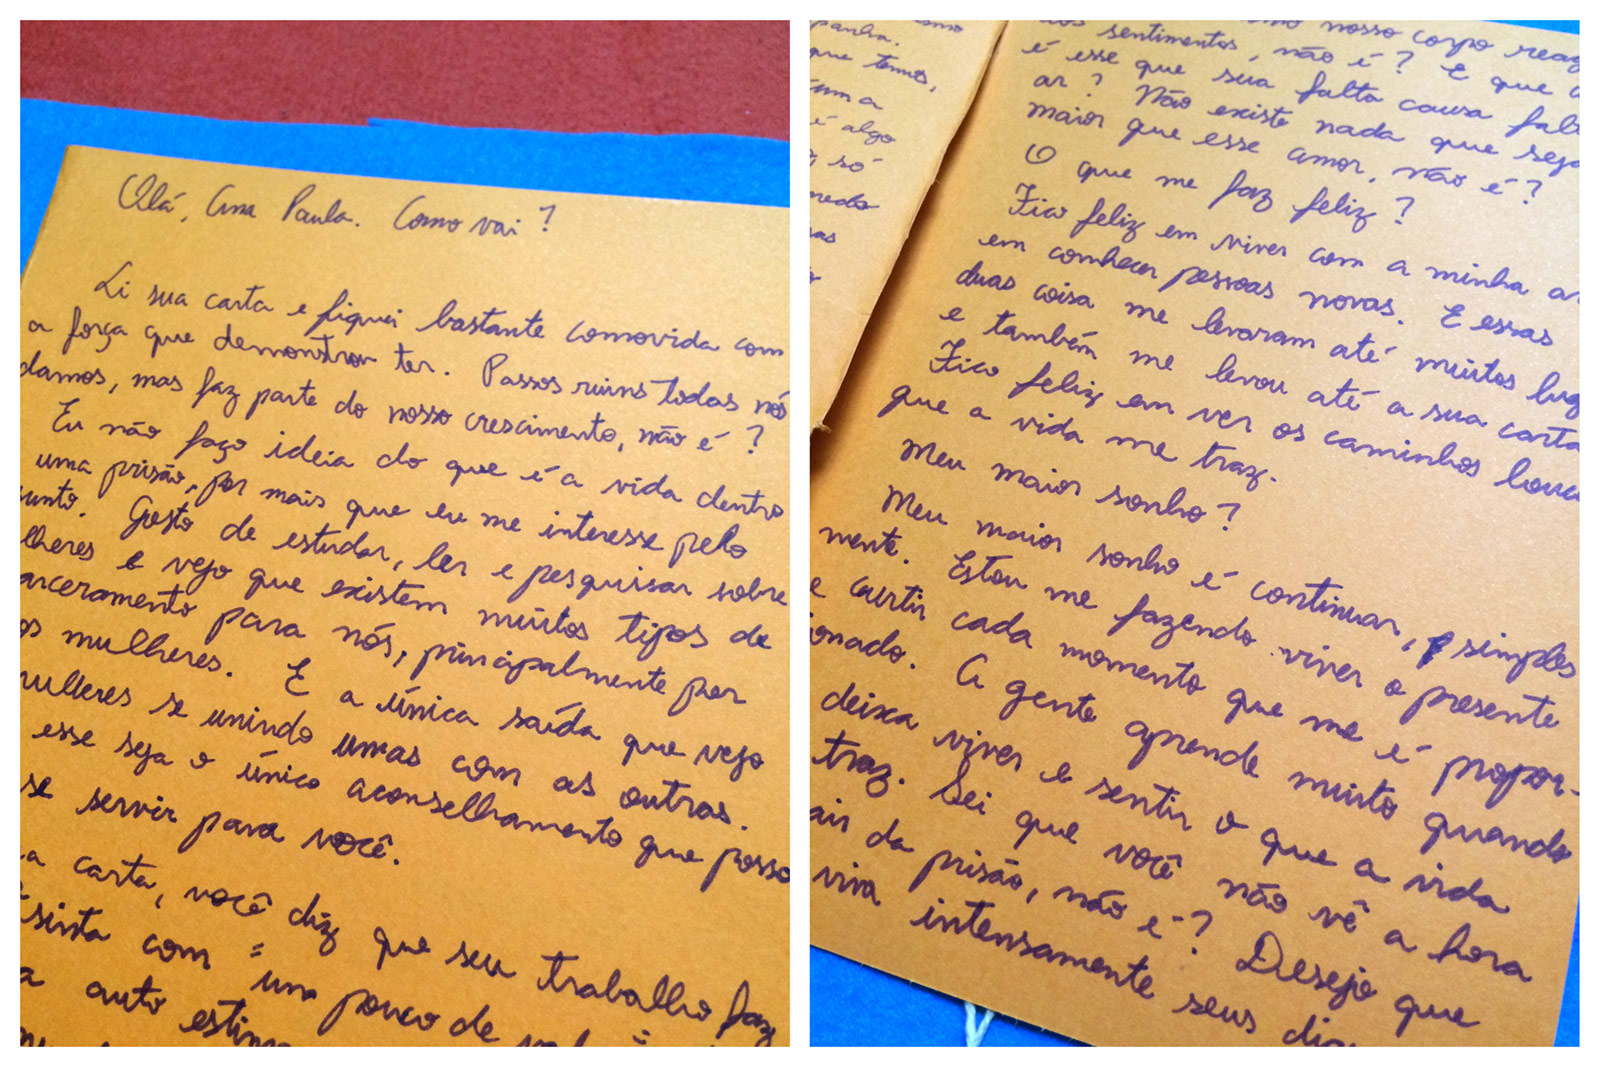 Olá, Ana Paula. Como vai?
Li sua carta e fiquei bastante comovida com
a força que demonstrou ter. Passos ruins todas nós
damos, mas faz parte do nosso crescimento, não é?
Eu não faço ideia do que é a vida dentro
uma prisão, por mais que eu me interesse pelo
sunto. Gosto de estudar, ler e pesquisar sobre
lheres e vejo que existem muitos tipos de
arceramento para nós, principalmente por
os mulheres. E a única saída que vejo
mulheres se unindo umas com as outras.
esse seja o único aconselhamento que posso
se servir para você.
a carta, você diz que seu trabalho faz
sinta com "um pouco de
a auto estima
panha.
que temos,
uma
é algo
só
medo
nosso corpo reag
sentimentos, não é? E que
é esse que sua falta causa falt
ar? Não existe nada que seja
maior que esse amor, não é?
O que me faz feliz?
Fico feliz em viver com a minha ar
em conhecer pessoas novas. E essas
duas coisa me levaram até muitos lug
e também me levou até a sua carta
Fico feliz em ver os caminhos louc
que a vida me traz.
Meu maior sonho?
Meu maior sonho é continuar, simples
mente. Estou me fazendo viver o presente
e curtir cada momento que me é propor-
ionado. A gente aprende muito quando
deixa viver e sentir o que a vida
traz. Sei que você não vê a hora
air da prisão, não é? Desejo que
viva intensamente seus dias